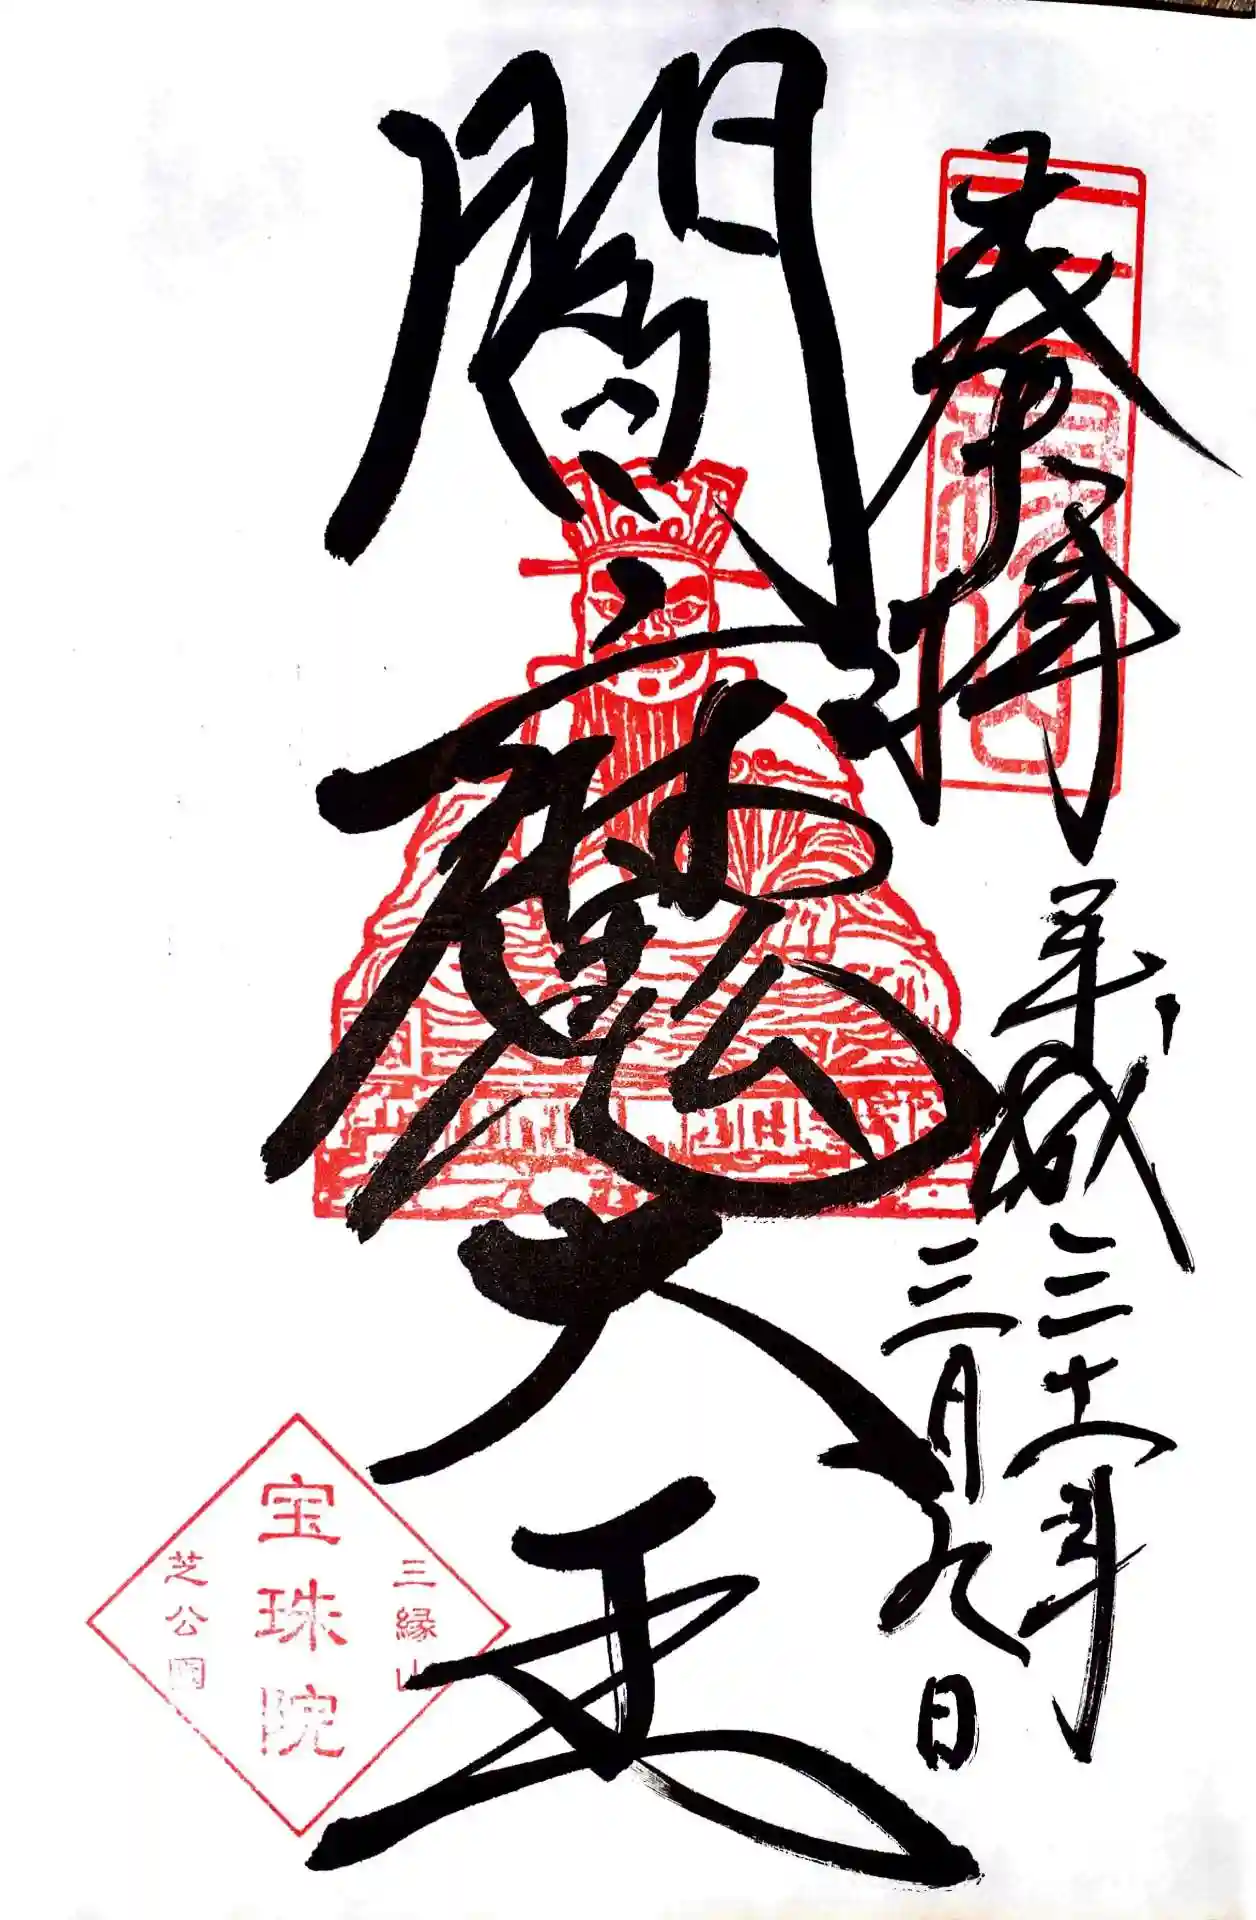 奉拝
平成三十一年
三月九日
三縁山
閻魔大王
三縁山
宝珠院
芝公園